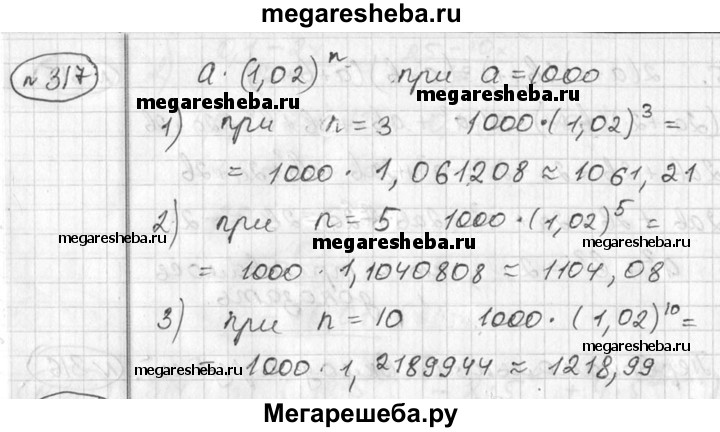 megaresheba.ru
№ 317 a · (1,02)ⁿ при a = 1000
megaresheba.ru megaresheba.ru
1) при n = 3 1000 · (1,02)³ =
= 1000 · 1,061208 ≈ 1061,21
2) при n = 5 1000 · (1,02)⁵ =
megaresheba.ru megaresheba.ru megaresheba.ru
= 1000 · 1,1040808 ≈ 1104,08
3) при n = 10 1000 · (1,02)¹⁰ =
= 1000 · 1,2189944 ≈ 1218,99
megaresheba.ru megaresheba.ru
Мегарешеба.ру